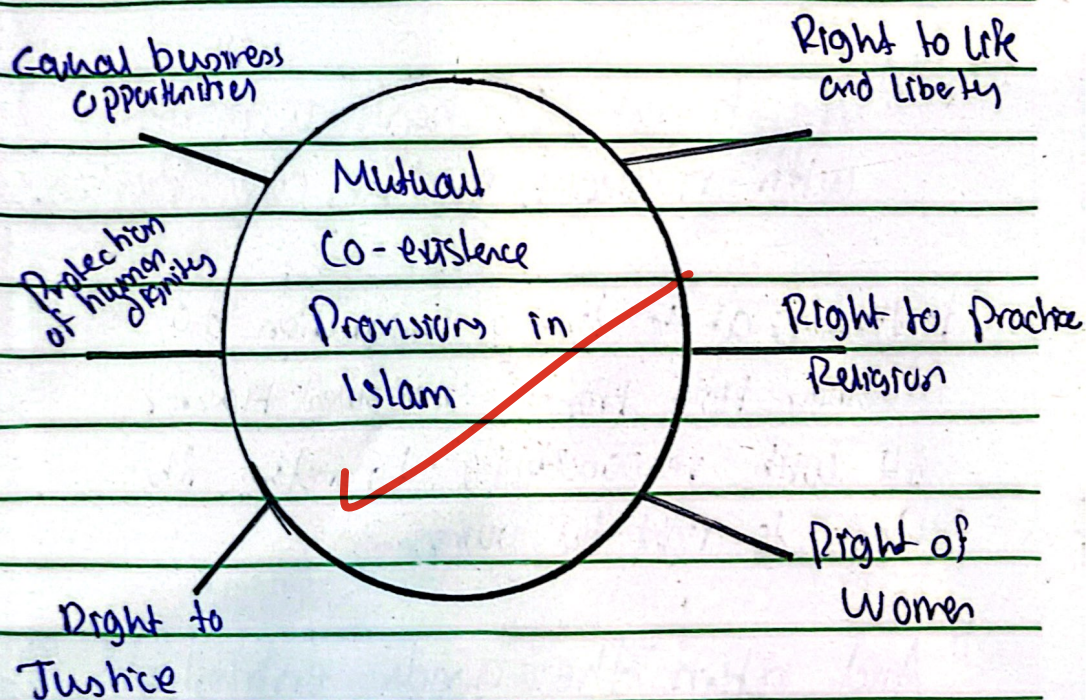 Equal business
opportunities
Right to Life
and Liberty
Mutual
Co-existence
Provisions in
Islam
Protection
of human
dignites
Right to Practice
Religion
Right to
Justice
Right of
Women